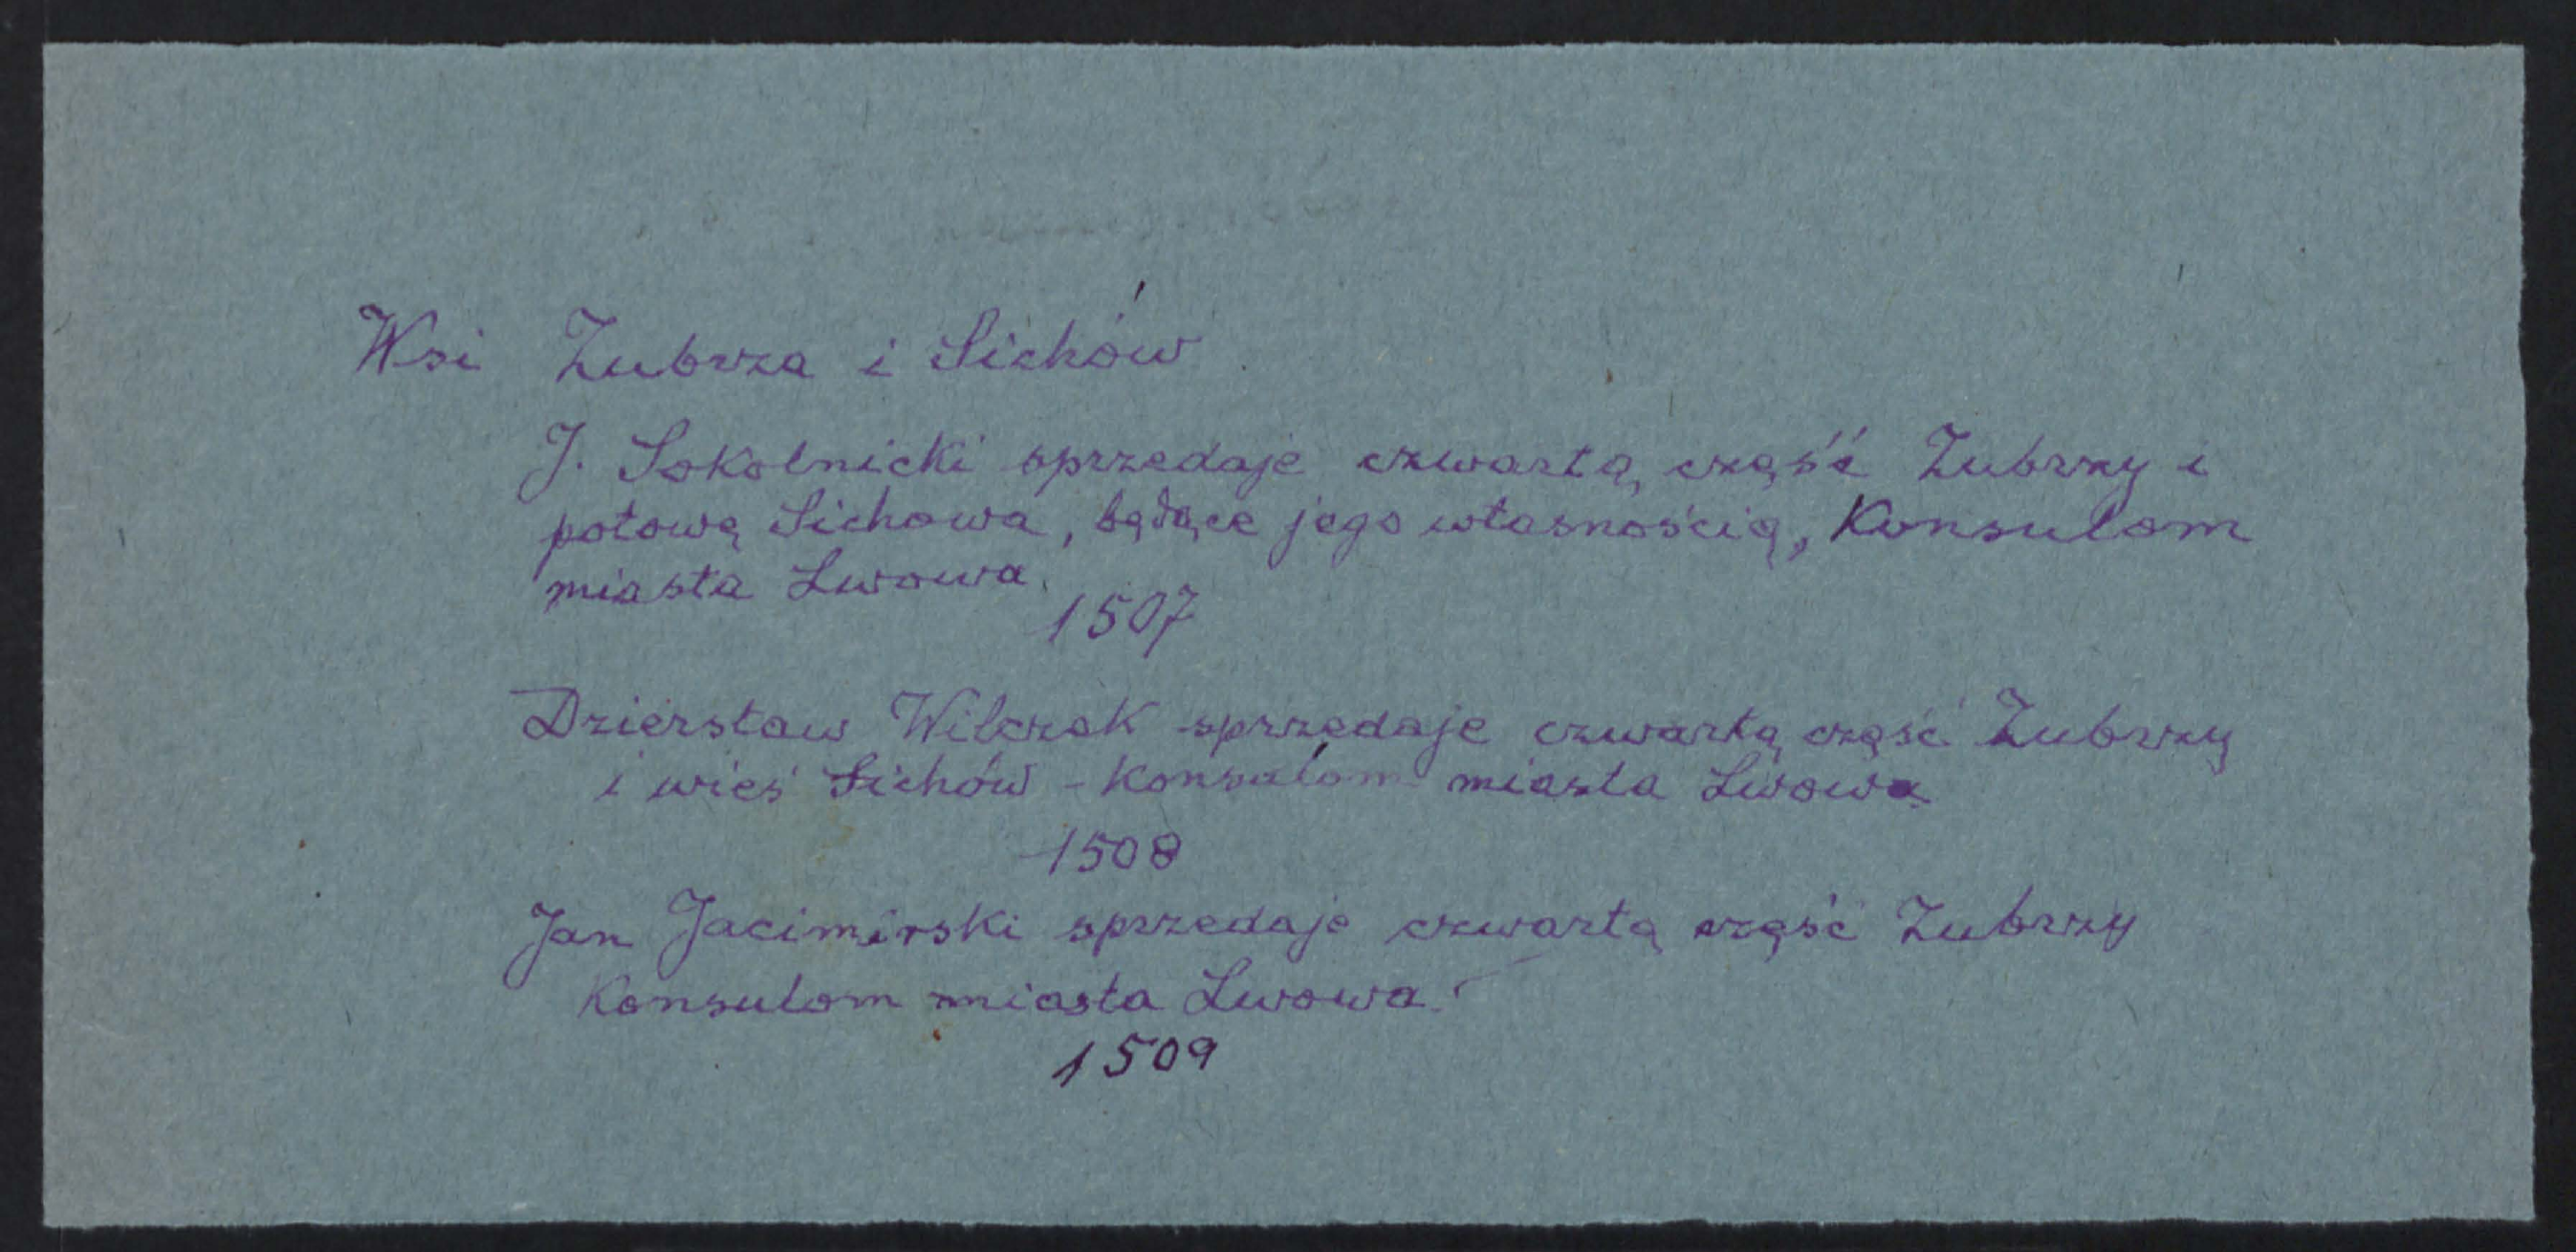 Wsi Zubrza i Sichów
J. Sokolnicki sprzedaje czwartą część Zubrzy i
połowę Sichowa, będące jego własnością, Konsulom
miasta Lwowa.
1507
Dziersław Wilczek sprzedaje czwartą część Zubrzy
i wieś Sichów - Konsulom miasta Lwowa
1508
Jan Jacimirski sprzedaje czwartą część Zubrzy
Konsulom miasta Lwowa.
1509